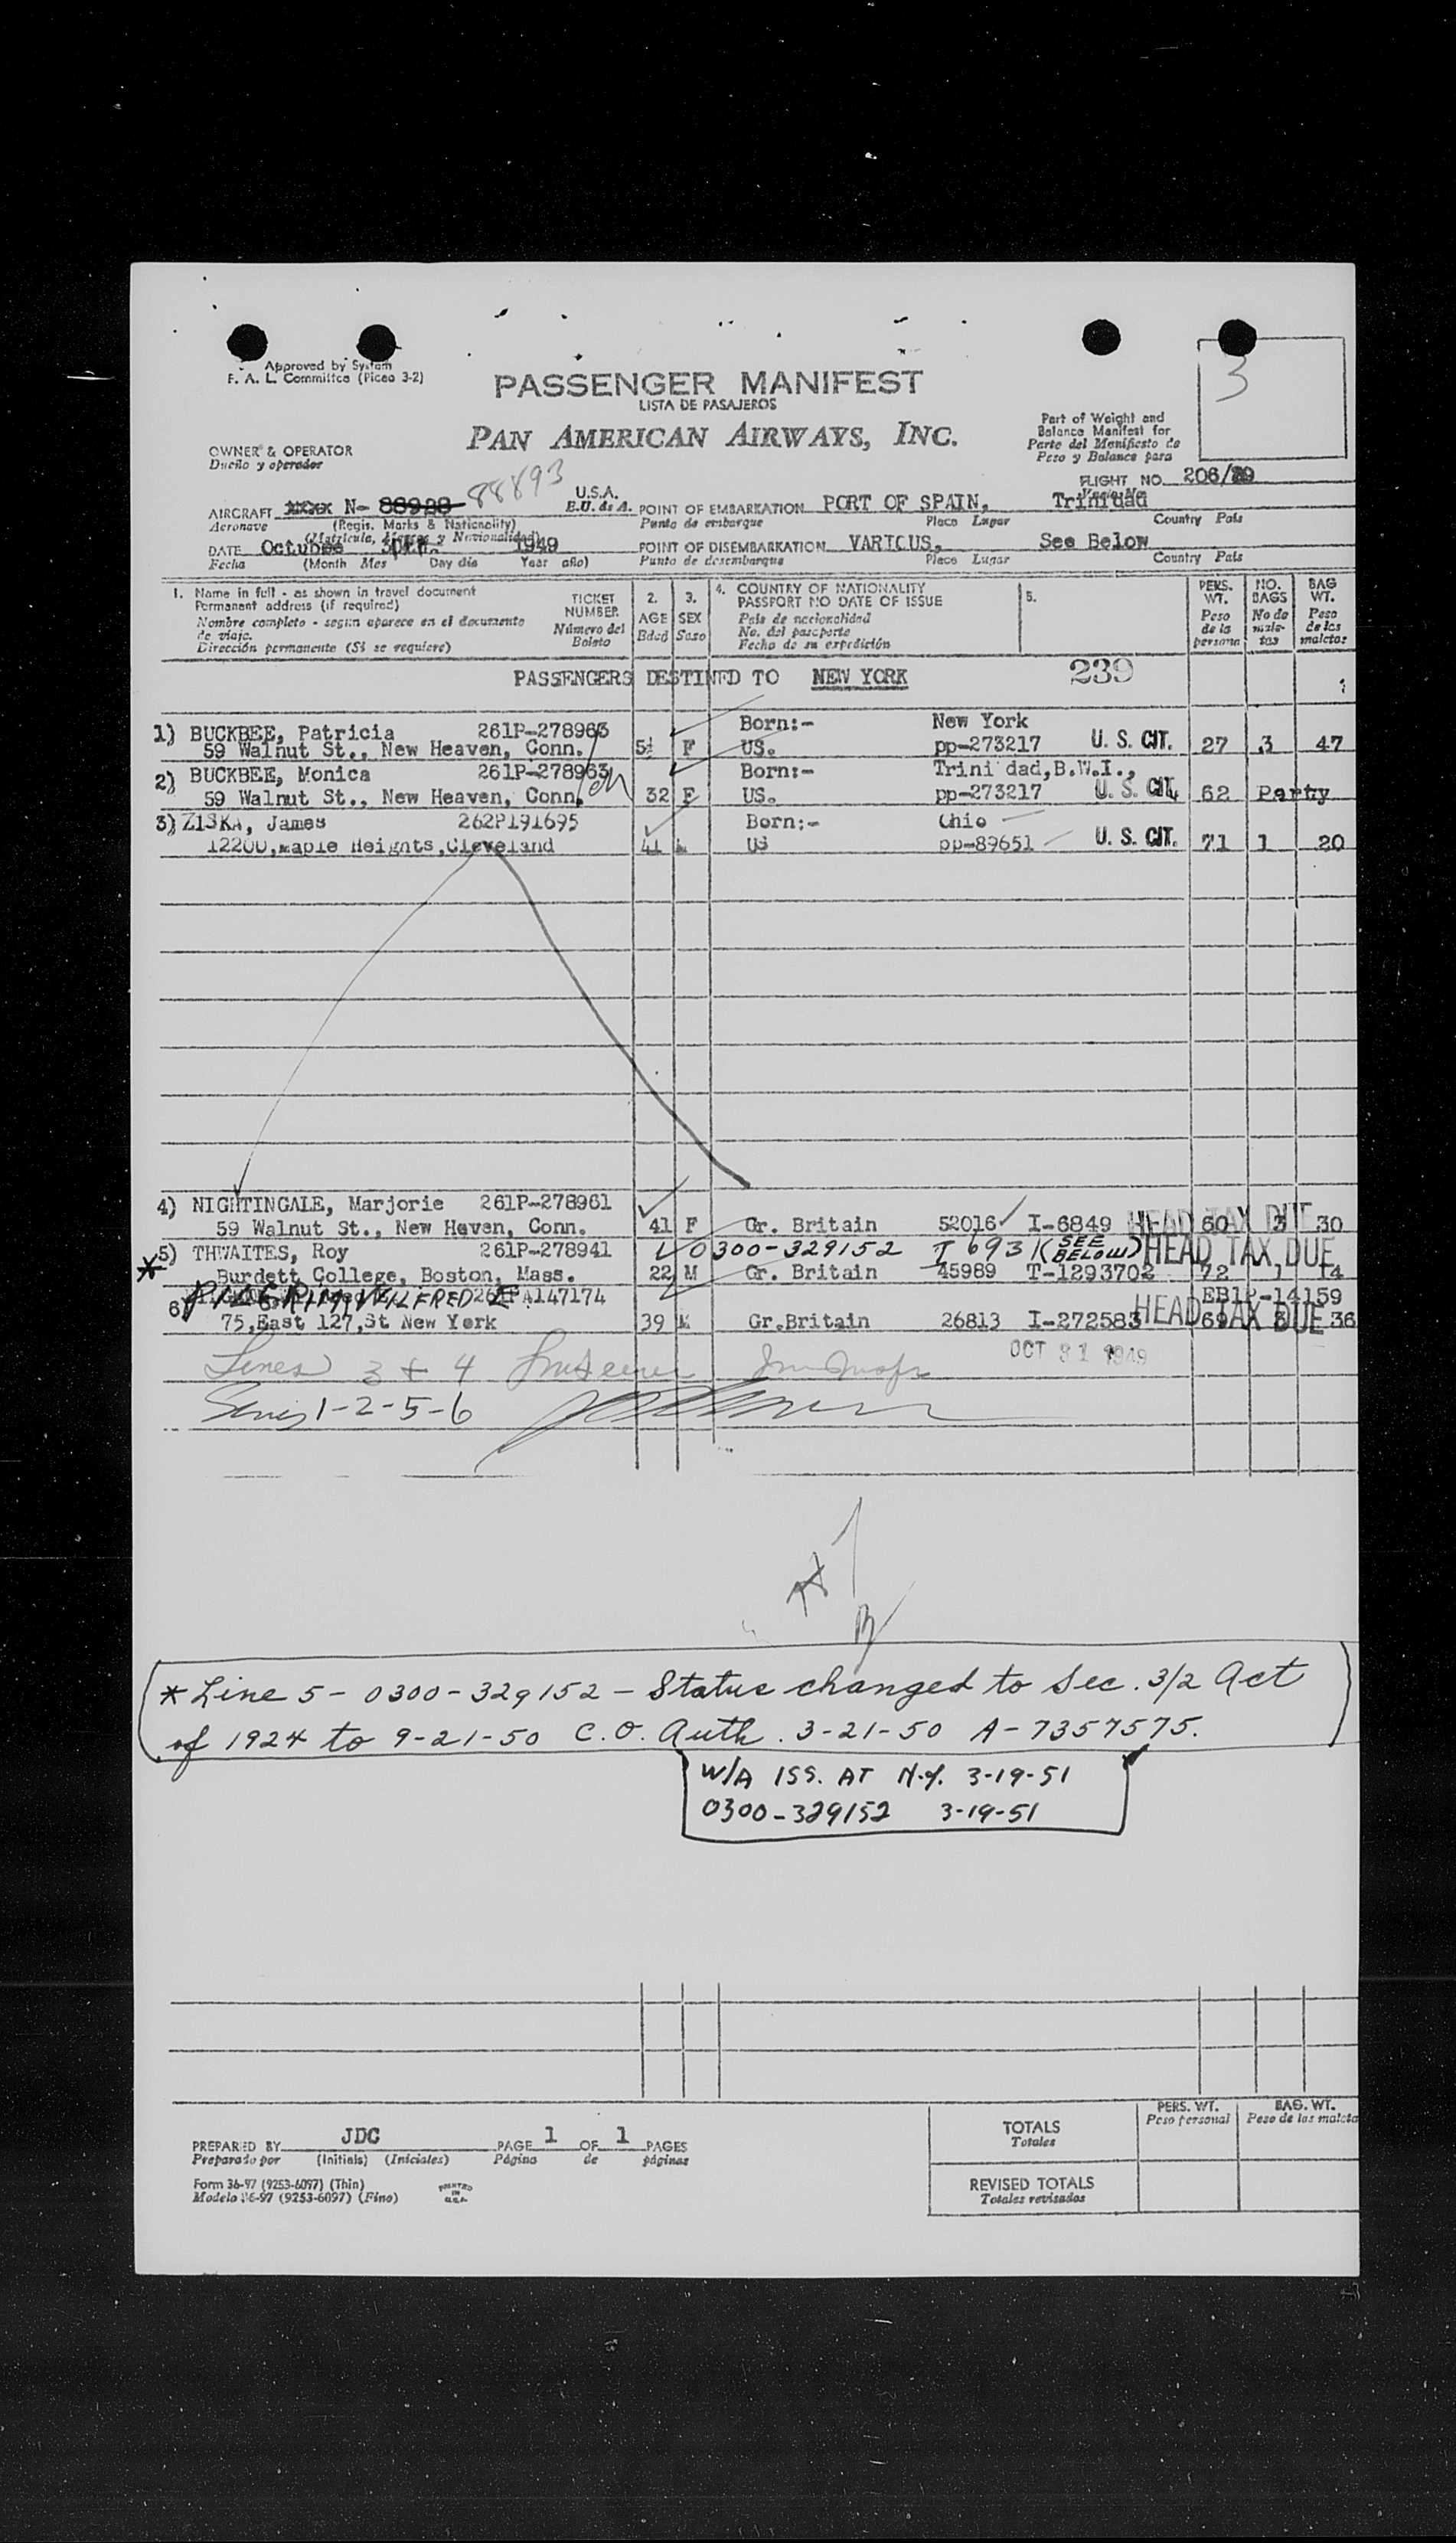 Approved by System
F. A. L. Committee (Piceo 3-2)
3
PASSENGER MANIFEST
LISTA DE PASAJEROS
PAN AMERICAN AIRWAYS, INC.
Part of Weight and
Balance Manifest for
Parte del Manifiesto de
Peso y Balance para
OWNER & OPERATOR
Dueño y operador
FLIGHT NO. 206/
AIRCRAFT N- 88893 U.S.A. POINT OF EMBARKATION PORT OF SPAIN, Trinidad
Aeronave (Regis. Marks & Nationality) E.U. de A. Punto de embarque Place Lugar Country País
DATE 1949 POINT OF DISEMBARKATION VARIOUS, See Below
Fecha (Month Mes Day día Year año) Punto de desembarque Place Lugar Country País
1. Name in full - as shown in travel document
Permanent address (if required)
Nombre completo - segun aparece en el documento
de viaje.
Dirección permanente (Si se requiere)
TICKET
NUMBER
Número del
Boleto
2.
AGE
Edad
3.
SEX
Sexo
4. COUNTRY OF NATIONALITY
PASSPORT NO DATE OF ISSUE
País de nacionalidad
No. del pasaporte
Fecha de su expedición
5.
PERS.
WT.
Peso
de la
persona
NO.
BAGS
No de
male-
tas
BAG
WT.
Peso
de las
maletas
PASSENGERS DESTINED TO NEW YORK 239
1) BUCKBEE, Patricia 261P-278963 Born:- New York
59 Walnut St., New Heaven, Conn. 5½ F US. pp-273217 U. S. CIT. 27 3 47
2) BUCKBEE, Monica 261P-278963 Born:- Trinidad,B.W.I.,
59 Walnut St., New Heaven, Conn. 32 F US. pp-273217 U. S. CIT. 62 Party
3) ZISKA, James 262P191695 Born:- Ohio
12200,Maple Heights,Cleveland 41 M US pp-89651 U. S. CIT. 71 1 20
4) NIGHTINGALE, Marjorie 261P-278961
59 Walnut St., New Haven, Conn. 41 F Gr. Britain 52016 I-6849 HEAD TAX DUE 60 3 30
*5) THWAITES, Roy 261P-278941 0300-329152 (SEE BELOW) HEAD TAX DUE
Burdett College, Boston, Mass. 22 M Gr. Britain 45989 T-1293702 72 1 14
6) PILGRIM, WILFRED E 147174 EB1P-14159
75,East 127,St New York 39 M Gr.Britain 26813 I-272583 HEAD TAX DUE 69 3 36
OCT 31 1949
Lines 3 & 4
1-2-5-6
* Line 5 - 0300-329152 - Status changed to Sec. 3/2 Act
of 1924 to 9-21-50 C.O. Auth. 3-21-50 A-7357575.
W/A ISS. AT N.Y. 3-19-51
0300-329152 3-19-51
TOTALS
Totales
PERS. WT.
Peso personal
BAG. WT.
Peso de las maleta
REVISED TOTALS
Totales revisados
PREPARED BY JDC PAGE 1 OF 1 PAGES
Preparado por (Initials) (Iniciales) Página de páginas
Form 36-97 (9253-6097) (Thin)
Modelo 36-97 (9253-6097) (Fino)
PRINTED
IN
U.S.A.